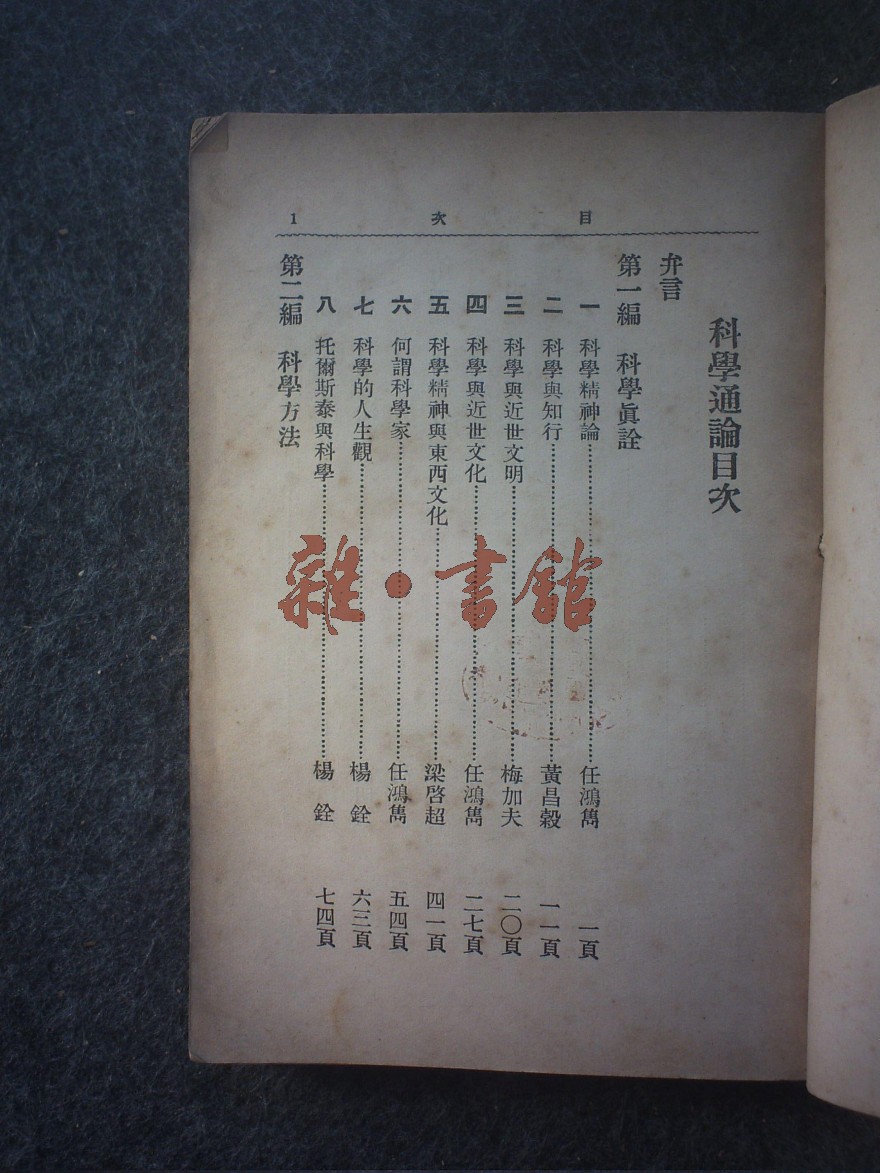 目次 1
科學通論目次
弁言
第一編 科學眞詮
一 科學精神論……任鴻雋 一頁
二 科學與知行……黃昌穀 一一頁
三 科學與近世文明……梅加夫 二〇頁
四 科學與近世文化……任鴻雋 二七頁
五 科學精神與東西文化……梁啓超 四一頁
六 何謂科學家……任鴻雋 五四頁
七 科學的人生觀……楊銓 六三頁
八 托爾斯泰與科學……楊銓 七四頁
第二編 科學方法
雜·書舘